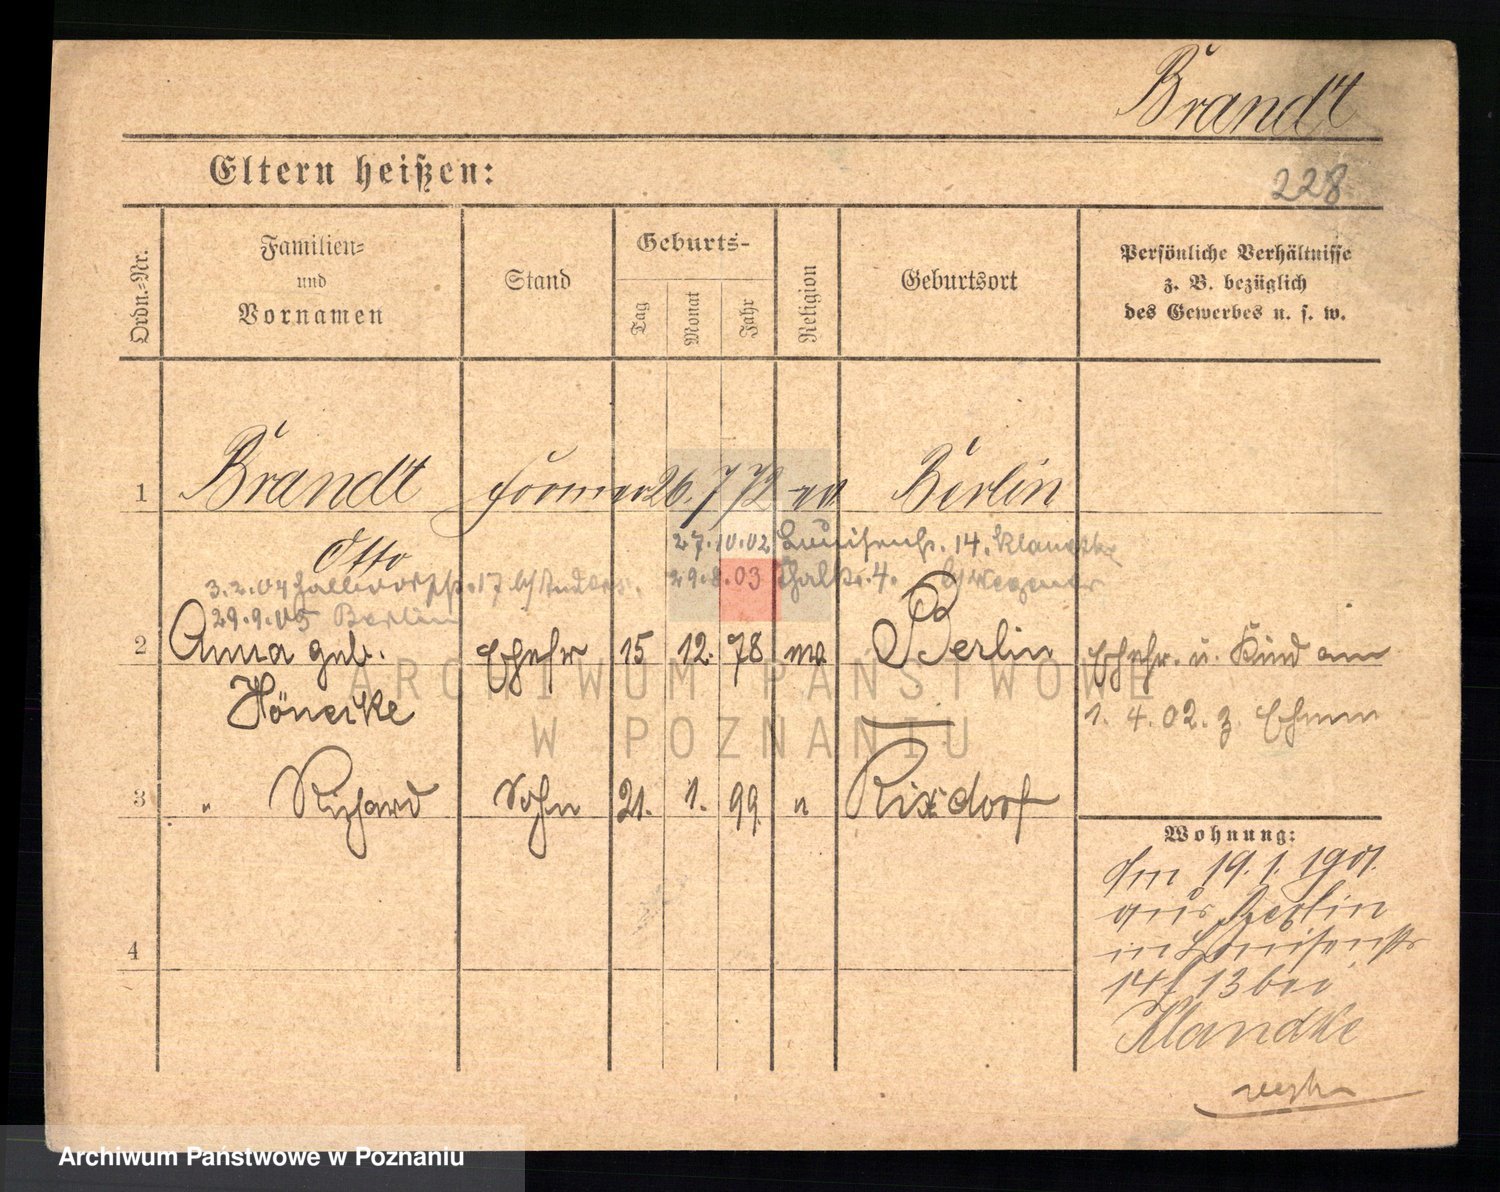 Brandt
Eltern heißen:
228
Ordn.-Nr.
Familien-
und
Vornamen
Stand
Geburts-
Tag
Monat
Jahr
Religion
Geburtsort
Persönliche Verhältnisse
z. B. bezüglich
des Gewerbes u. s. w.
1 Brandt Former 26. 7 72 ev Berlin
Otto
27.10.02 Luisenstr. 14. Klandke
3.2.04 17 b/ 29.8.03 Thalstr. 4. b/ Wegener
29.9.05 Berlin
2 Anna geb. Ehefr 15 12. 78 ev. Berlin Ehefr. u. Kind am
Höneike 1. 4. 02. z. Ehemann
3 " Richard Sohn 21. 1. 99 " Rixdorf
4
Wohnung:
Am 19. 1. 1901.
aus Berlin
in Louisenstr
14 13 bei
Klandke
ARCHIWUM PAŃSTWOWE
W POZNANIU
Archiwum Państwowe w Poznaniu